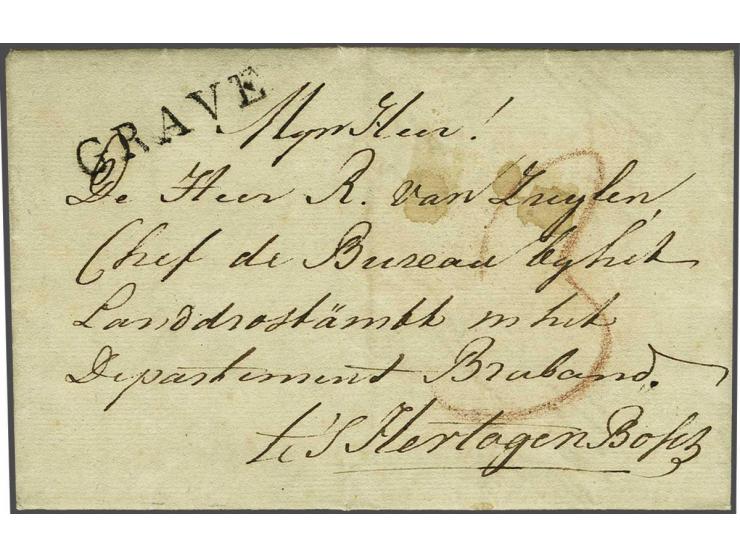 GRAVE
Mijn Heer!
De Heer R. van Zuylen,
Chef de Bureau by het
Landdrostämbt in het
Departement Braband.
te 'S HertogenBosch
3